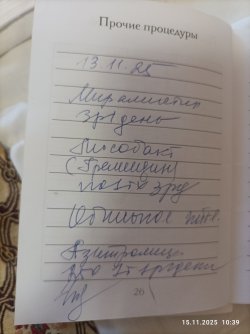 Прочие процедуры
13.11.25
Мирамистин
3р/день
Лизобакт
(Граммидин)
по 1т 3р/д
Обильное питье.
Азитромиц
1р/день
26
15.11.2025 10:39